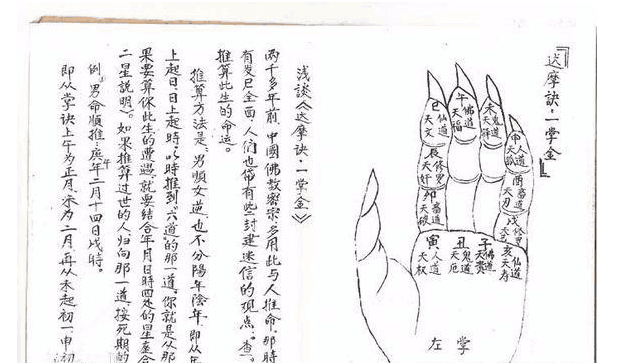 『达摩訣·一掌金』
浅談《达摩訣·一掌金》
兩千多年前,中國佛教密宗多用此与人推命,那時
有麦尸全面,人们也带有些封建迷信的观点。查。
推算此生的命运。
推算方法是:男順女逆,也不分陽年陰年,即从
上起日,日上起時,以時推到"六道"的那一道,你就是从那
果要算你此生的遭遇,就要結合年月日時四处的星座合
二星説明)。如果推算过世的人归向那一道,按死期的
例:男命順推:庚午年二月十四日戌時。
即从掌訣上午为正月,未为二月,再从未起初一,申初
巳仙道天文
午佛道天福
未鬼道天驛
申人道天孤
辰修罗天奸
酉畜道天刃
卯畜道天破
戌修罗天艺
寅人道天权
丑鬼道天厄
子佛道天贵
亥仙道天寿
左掌